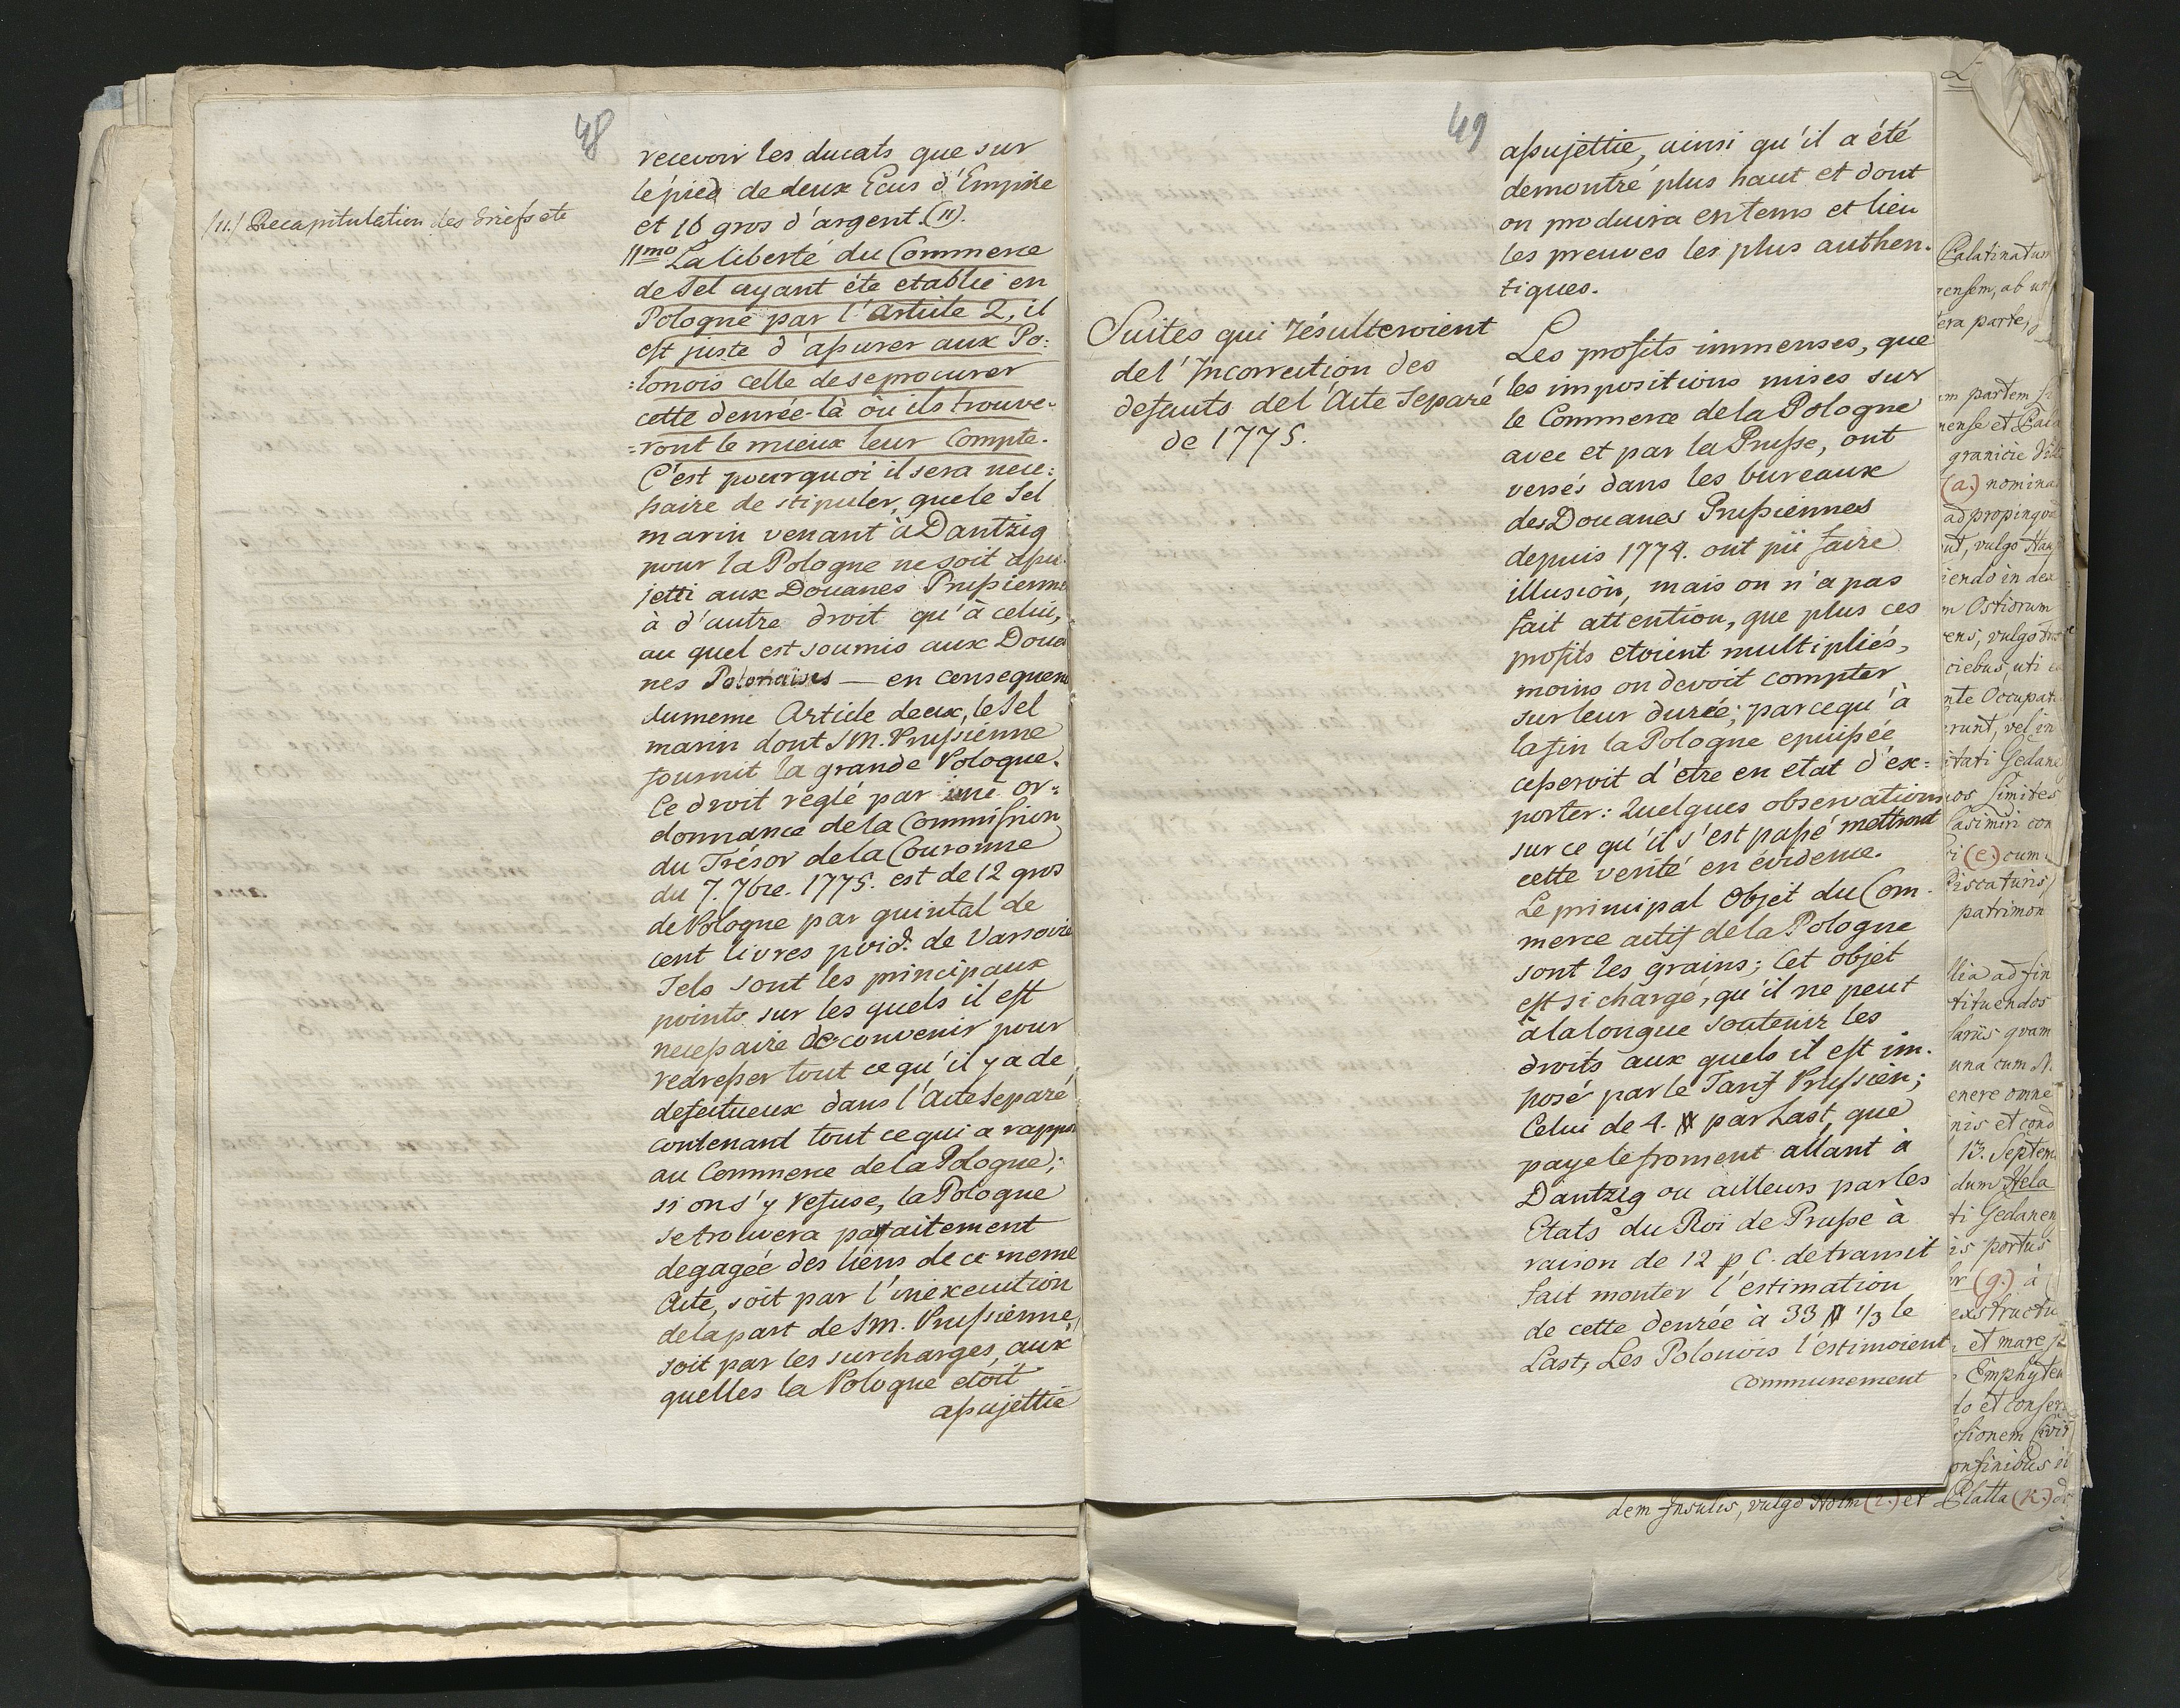 48
/11/ Recapitulation des Griefs etc
recevoir les ducats que sur
le pied de deux Ecus d'Empire
et 16 gros d'argent (11).
11mo La liberté du Commerce
de Sel ayant été etablie en
Pologne par l'Article 2, il
est juste d'assurer aux Po:
:lonois celle de se procurer
cette denrée-là où ils trouve-
=ront le mieux leur Compte.
C'est pourquoi il sera nece:
ssaire de stipuler, que le Sel
marin venant à Dantzig
pour la Pologne ne soit assu-
jetti aux Douanes Prussiennes
à d'autre droit qu'à celui,
au quel est soumis aux Doua
nes Polonaises — en consequence
du meme Article deux, le Sel
marin dont S M. Prussienne
fournit la grande Pologne.
Ce droit reglé par une or=
donnance de la Commission
du Trésor de la Couronne
du 7. 7bre. 1775. est de 12 gros
de Pologne par quintal de
cent livres poid. de Varsovie
Tels sont les principaux
points sur les quels il est
necessaire de convenir pour
redresser tout ce qu'il y a de
defectueux dans l'Acte Separé
contenant tout ce qui a rappor
au Commerce de la Pologne;
si on s'y refuse, la Pologne
se trouvera parfaitement
degagée des liens de ce meme
Acte, soit par l'inexecution
de la part de S M. Prussienne,
soit par les surcharges, aux
quelles la Pologne etoit
assujettie
49
assujettie, ainsi qu'il a été
demontré plus haut et dont
on produira en tems et lieu
les preuves les plus authen-
tiques.
Suites qui résulteroient
de l'Incorrection des
defauts de l'Acte Separé
de 1775.
Les profits immenses, que
les impositions mises sur
le Commerce de la Pologne
avec et par la Prusse, ont
versés dans les bureaux
des Douanes Prussiennes
depuis 1774. ont pü faire
illusion, mais on n'a pas
fait attention, que plus ces
profits etoient multipliés,
moins on devoit compter
sur leur durée; parcequ'à
la fin la Pologne epuisée
cesseroit d'etre en etat d'ex=
porter: Quelques observations
sur ce qu'il s'est passé mettront
cette verité en évidence.
Le principal Objet du Com-
merce actif de la Pologne
sont les grains; Cet objet
est si chargé, qu'il ne peut
à la longue soutenir les
droits aux quels il est im-
posé par le Tarif Prussien;
Celui de 4. # par Last, que
paye le froment allant à
Dantzig ou ailleurs par les
Etats du Roi de Prusse à
raison de 12 p C. de transit
fait monter l'estimation
de cette denrée à 33 # 1/3 le
Last, Les Polonois l'estimoient
communement
Palatinatum
rensem, ab
era parte,
m partem
rense et
granicie
(a.) nomina
ad propinqu
ut, vulgo
iendo in dex
m Ostiorum
ens, vulgo
ciebus, uti
nte Occupat
runt, vel in
itati Gedane
uos Limites
Casimiri con
i (e.) cum
Piscaturis
patrimon
llia ad fin
tituendos
lariis quam
una cum
enere omne
inis et cond
13. Septem
dum Hela
ti Gedanen
is portus
(g.) à
exstructu
et mare
Emphyteu
do et conser
sionem
onfinibus
dem Insulis, vulgo Holm (i.) et Platta (k.)